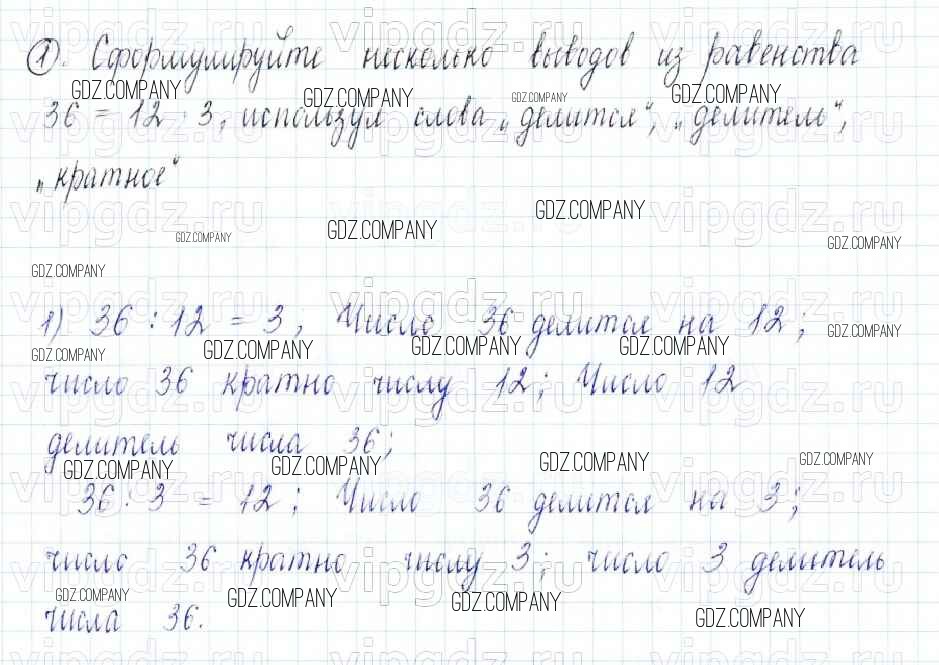 1. Сформулируйте несколько выводов из равенства
36 = 12 · 3, используя слова „делится“, „делитель“,
„кратное“
1) 36 : 12 = 3; Число 36 делится на 12;
число 36 кратно числу 12; Число 12
делитель числа 36;
36 : 3 = 12; Число 36 делится на 3;
число 36 кратно числу 3; число 3 делитель
числа 36.
vipgdz.ru
GDZ.COMPANY